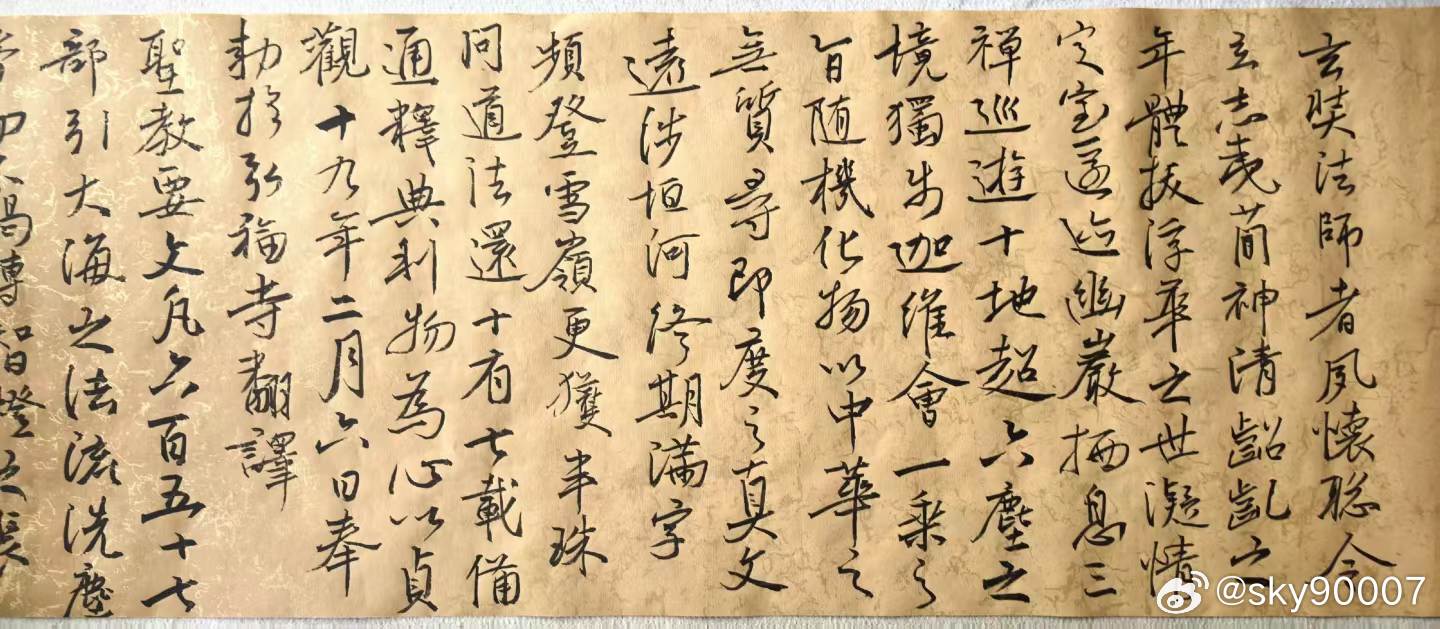 玄奘法師者夙懷聡令
立志夷蕳神清齠齔之
年體拔浮華之世凝情
定室匿迹幽巖栖息三
禅巡遊十地超六塵之
境獨步迦維會一乘之
旨随機化物以中華之
無質尋印度之真文
遠涉恒河終期滿字
頻登雪嶺更獲半珠
問道法還十有七載備
通釋典利物為心以貞
觀十九年二月六日奉
勅於弘福寺翻譯
聖教要文凡六百五十七
部引大海之法流洗塵
竭傳智燈之長
@sky90007